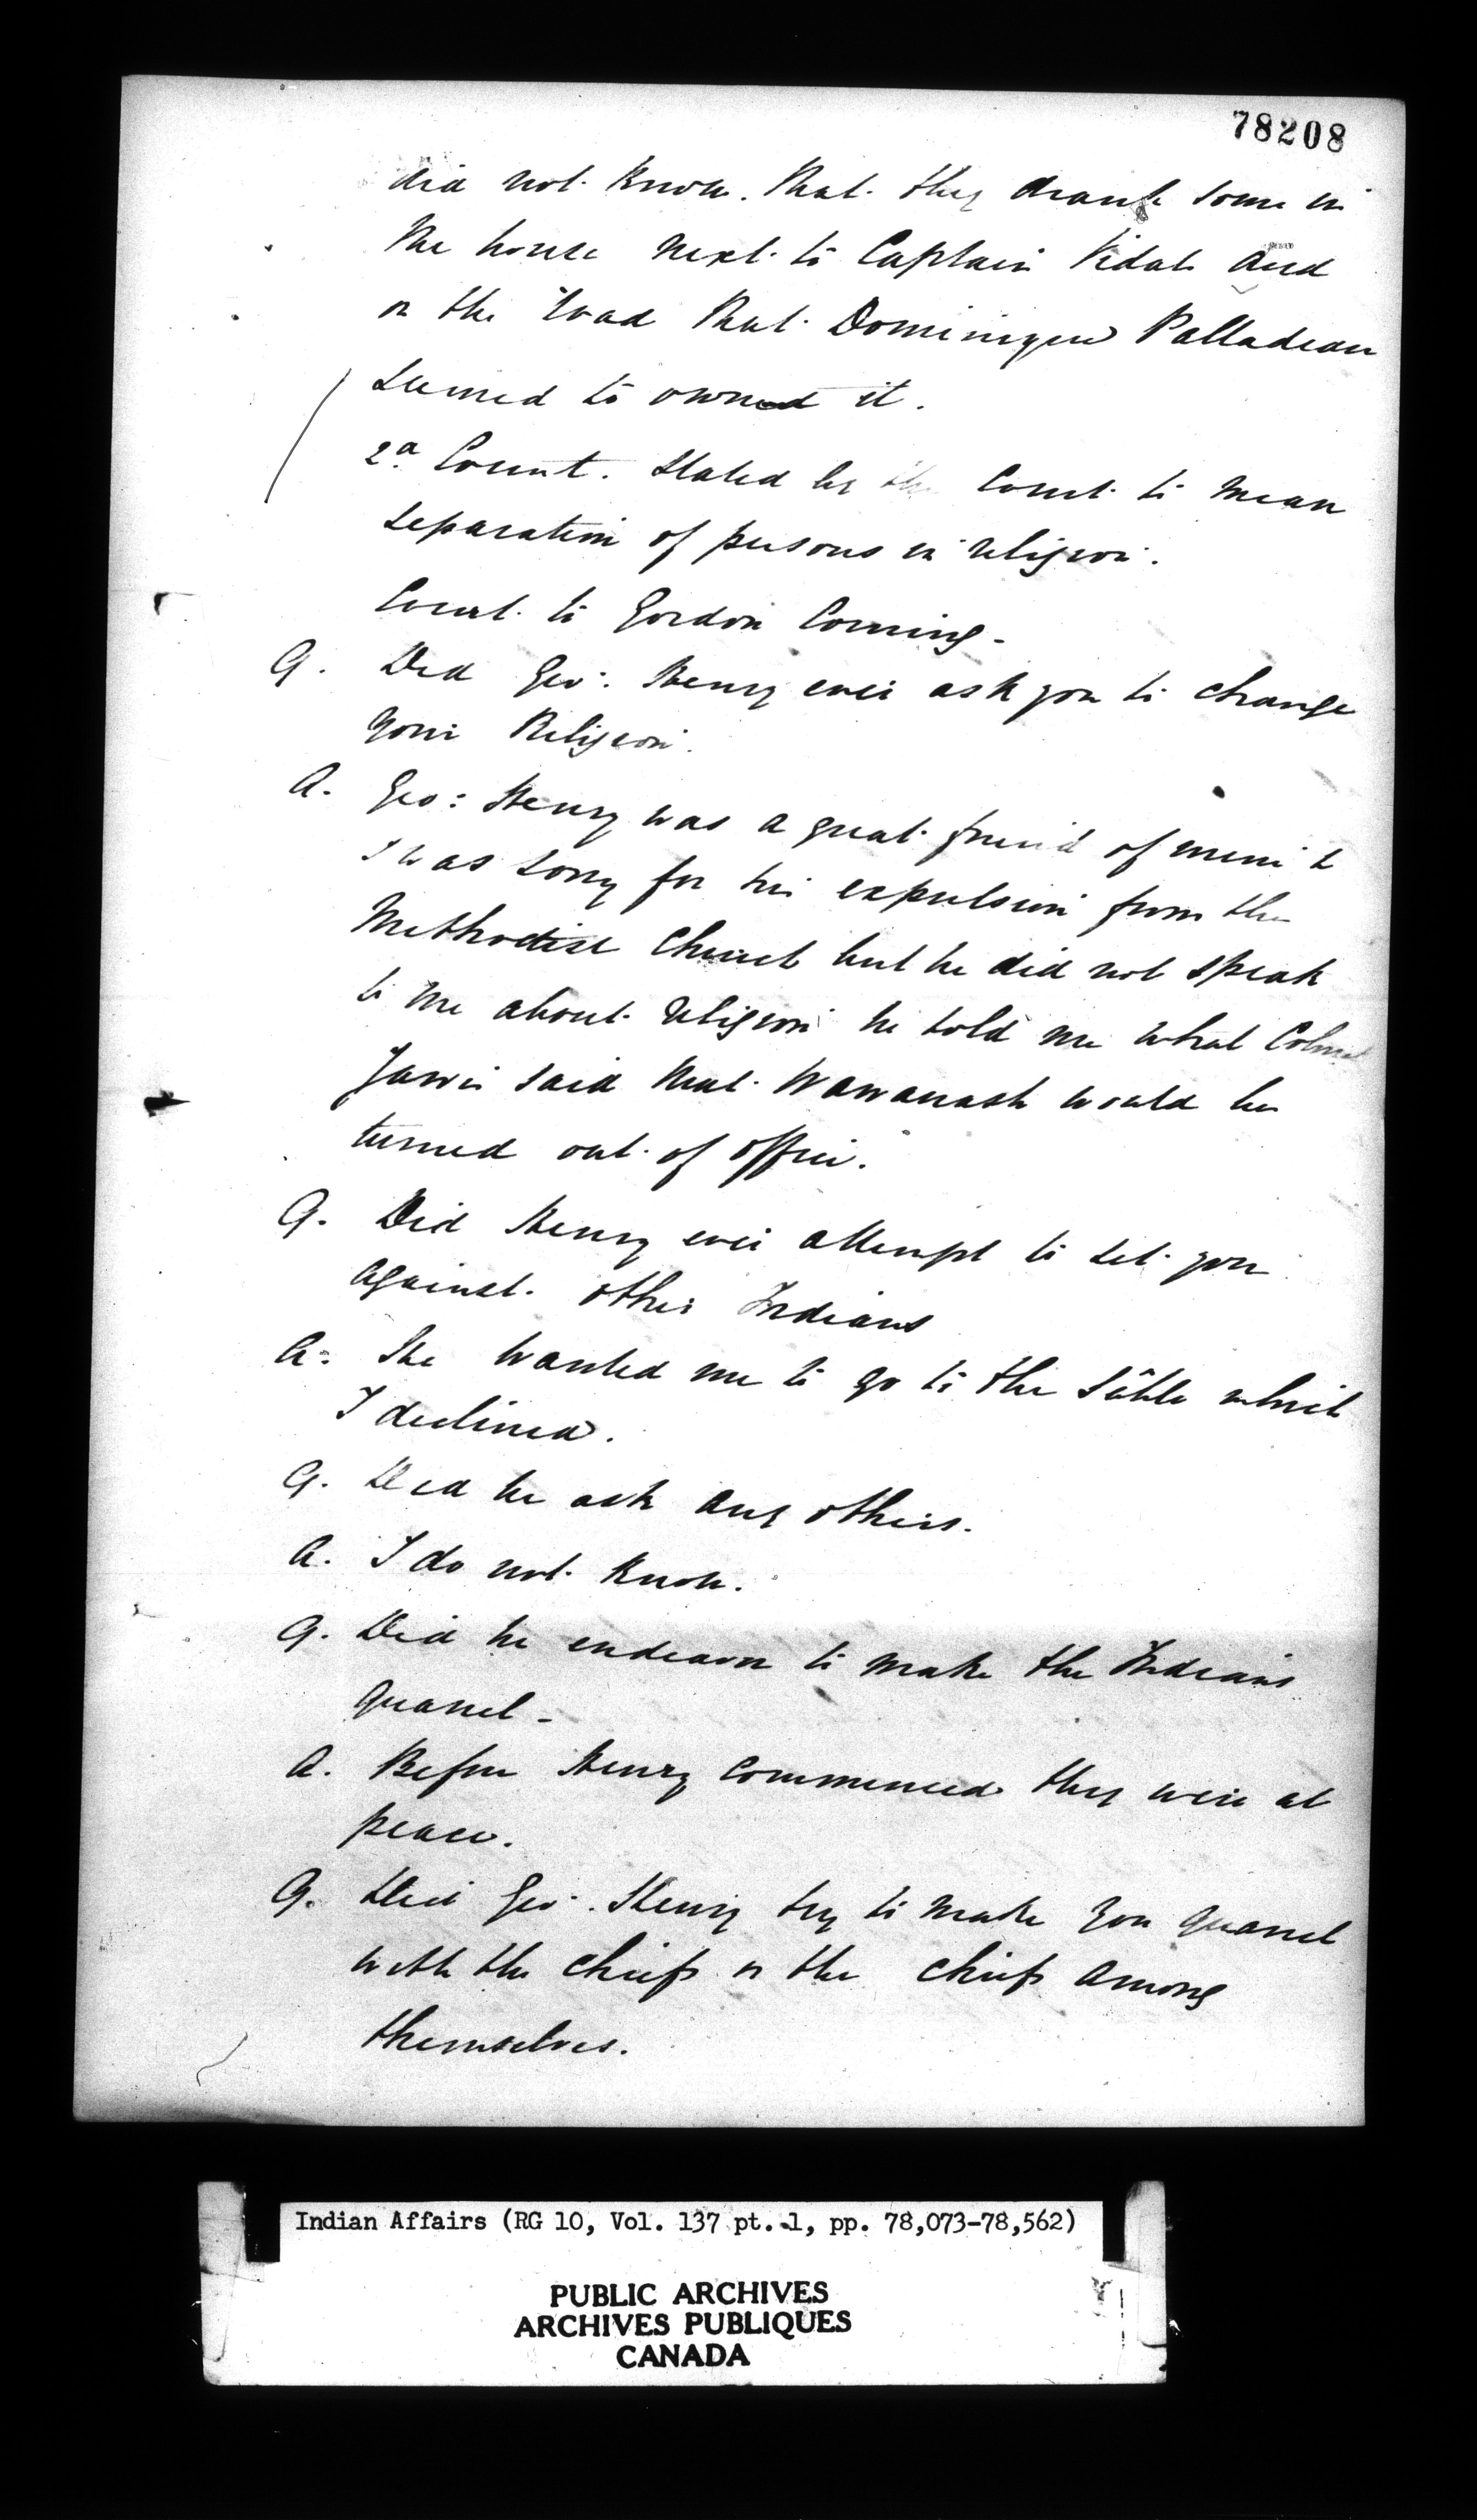 78208
did not know. that they drank some in
the house next to Captain Vidals and
on the road that Dominique Palladeau
seemed to owned it.
2d Count. Stated by the Court to mean
separation of persons in religion.
Court to Gordon Corning -
Q. Did Geo: Henry ever ask you to change
your Religion.
A. Geo: Henry was a great friend of mine &
I was sorry for his expulsion from the
Methodist Church but he did not speak
to me about religion he told me what Colonel
Jarvis said that Wawanash would be
turned out of office.
Q. Did Henry ever attempt to set you
against other Indians
A. He wanted me to go to the Sable which
I declined.
Q. Did he ask any others.
A. I do not know.
Q. Did he endeavor to make the Indians
quarrel -
A. Before Henry commenced they were at
peace.
Q. Did Geo. Henry try to make you quarrel
with the chiefs or the chiefs among
themselves.
Indian Affairs (RG 10, Vol. 137 pt. 1, pp. 78,073-78,562)
PUBLIC ARCHIVES
ARCHIVES PUBLIQUES
CANADA